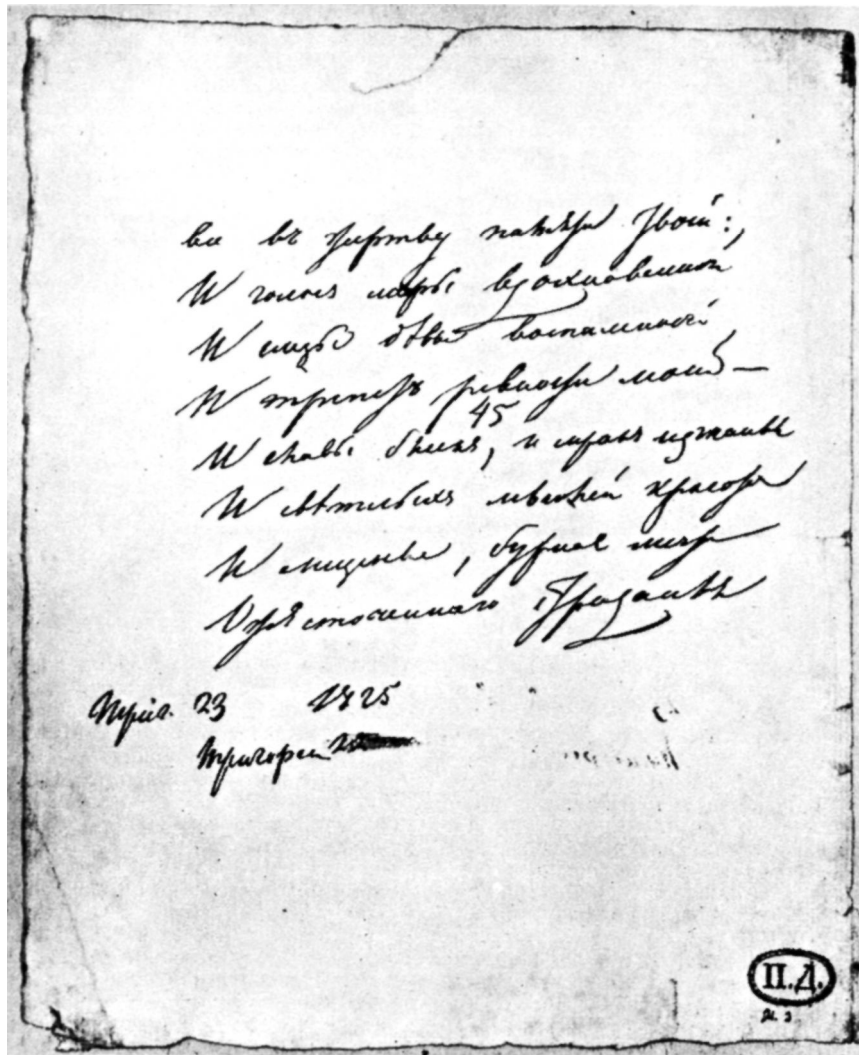 Все въ жертву памяти твоей:
И голосъ лиры вдохновенной
И слезы дѣвы воспаленной
И трепетъ ревности моей —
45
И славы блескъ, и мракъ изгнанья
И свѣтлыхъ мыслей красота
И мщенье, бурная мечта
Ожесточеннаго страданья
23 1825
П.Д.